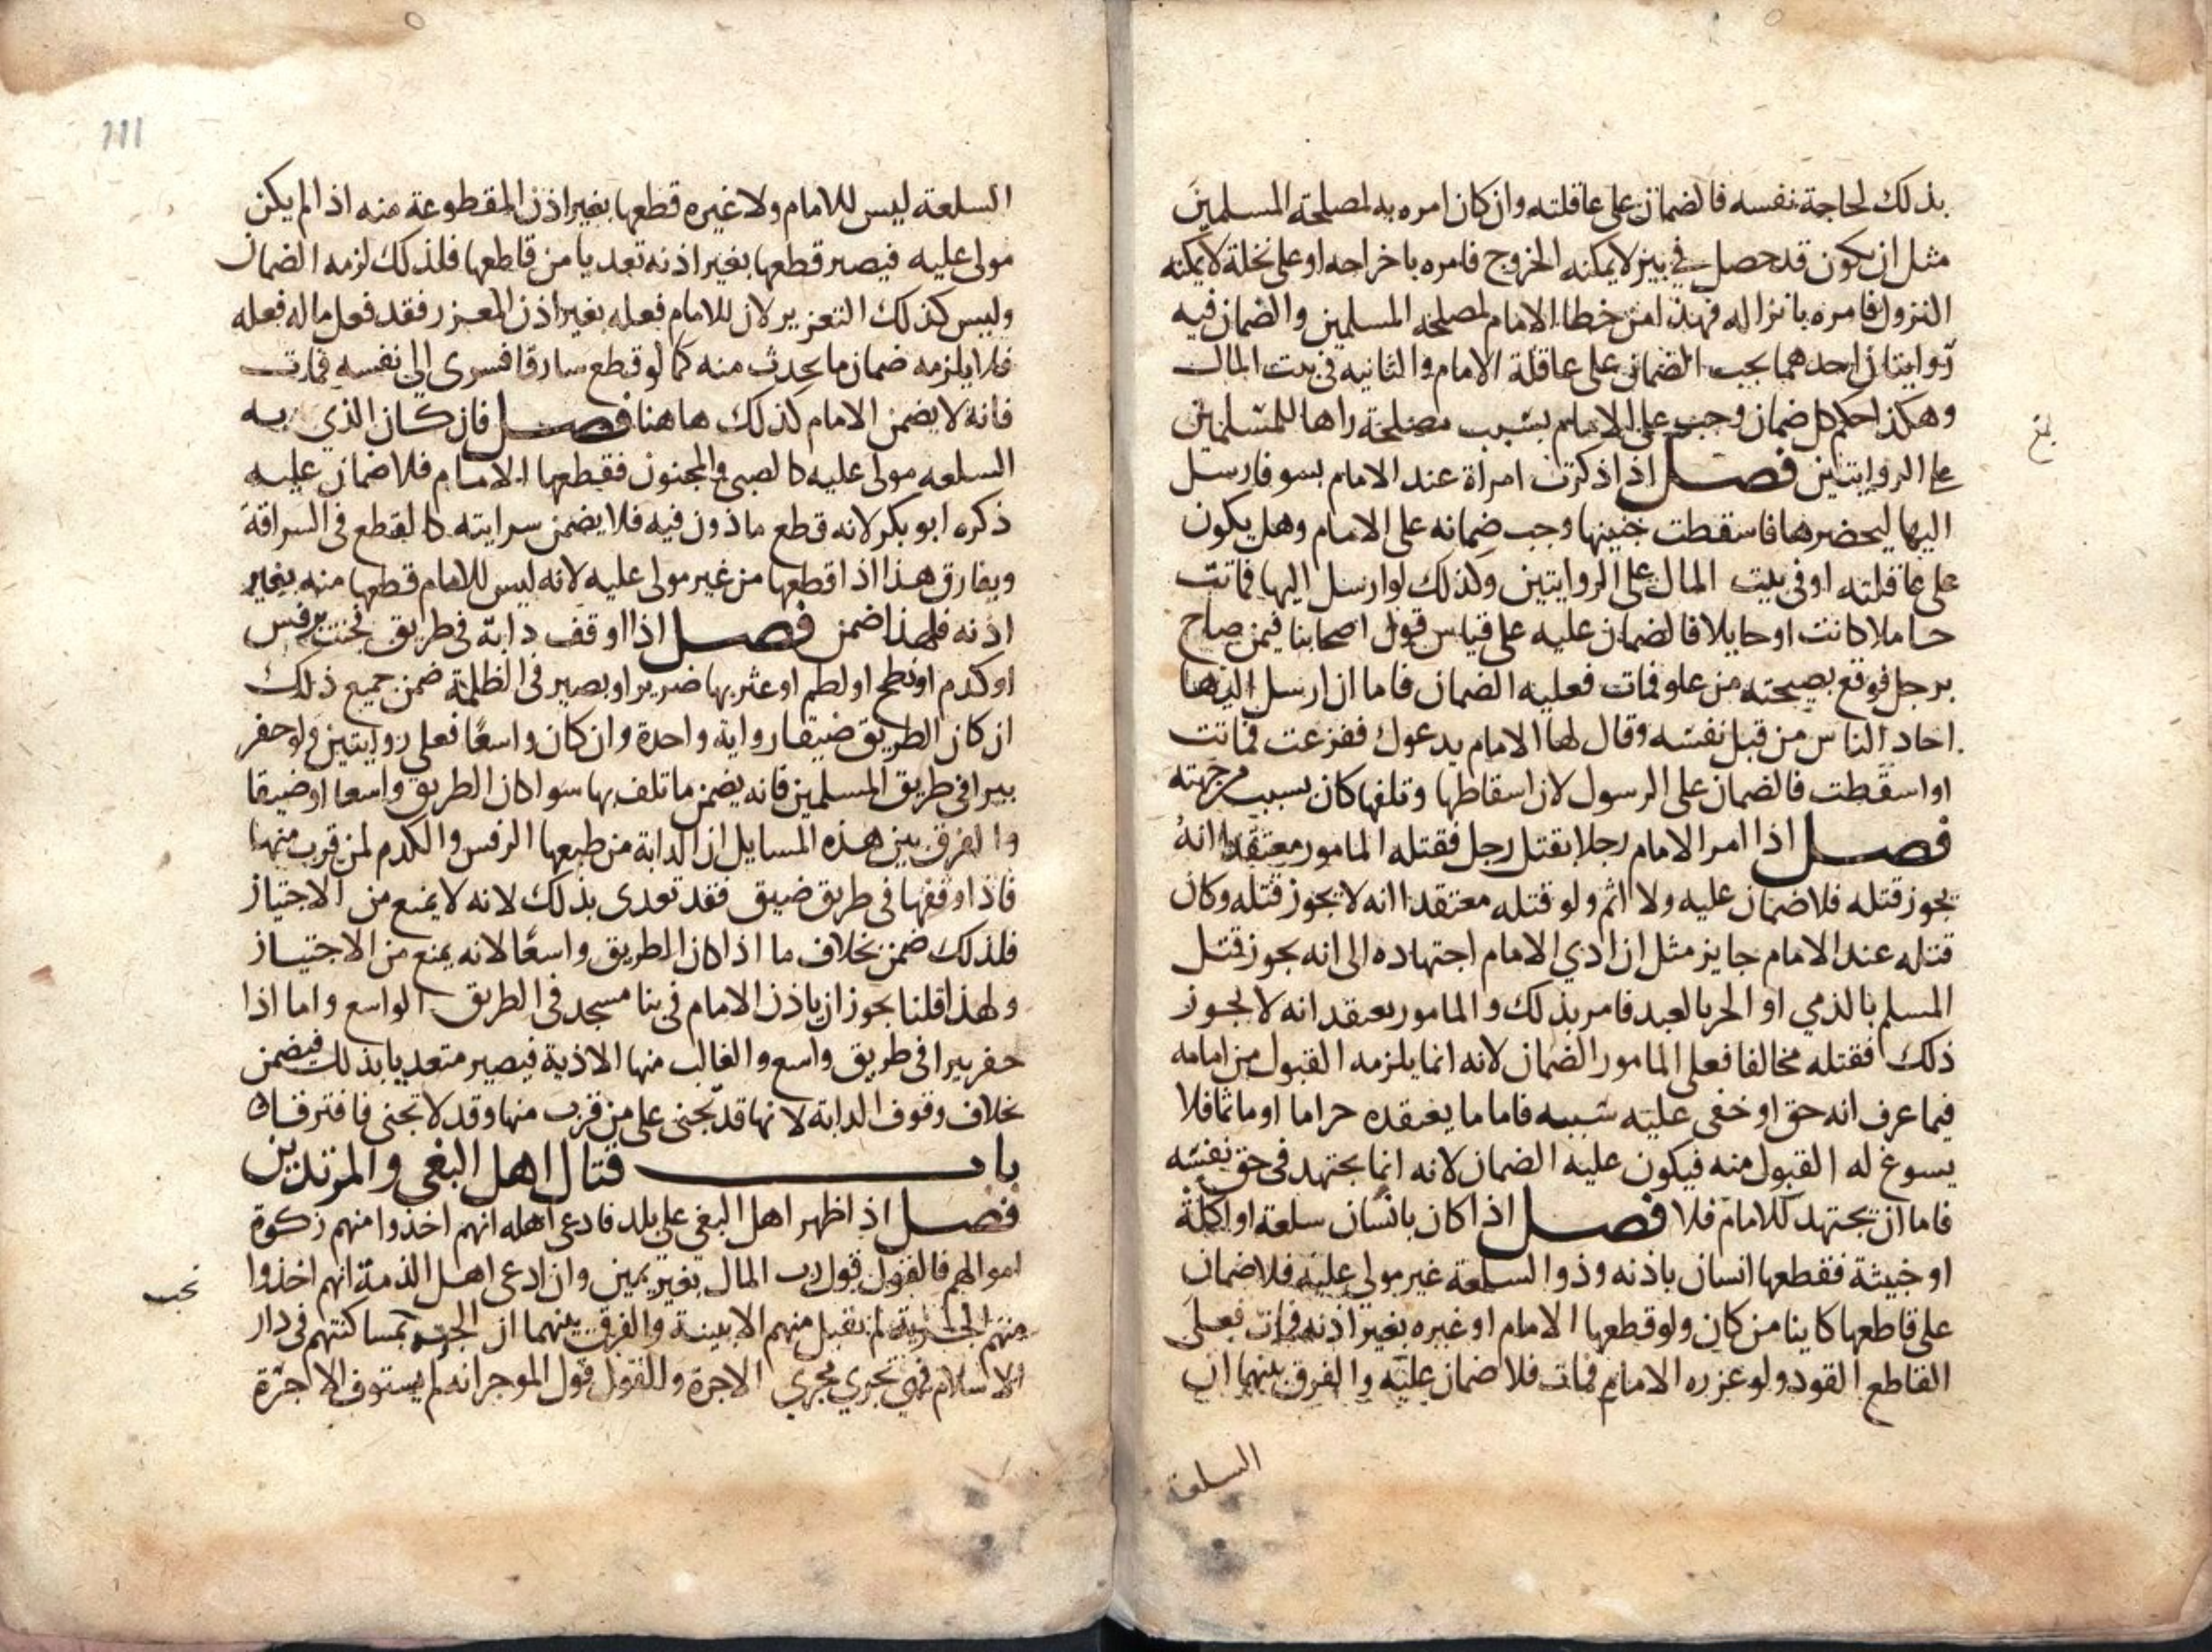 بذلك لحاجة نفسه فالضمان على عاقلته وان كان امره به لمصلحة المسلمين
مثل ان يكون قد حصل في بير لا يمكنه الخروج فامره باخراجه او على نخلة لا يمكنه
النزول فامره بانزاله فهذا من خطا الامام لمصلحة المسلمين والضمان فيه
روايتان احدهما يجب الضمان على عاقلة الامام والثانيه في بيت المال
وهكذا حكم كل ضمان وجب على الامام بسبب مصلحة راها للمسلمين
على الروايتين فصل اذا ذكرت امراة عند الامام بسو فارسل
اليها ليحضرها فاسقطت جنينها وجب ضمانه على الامام وهل يكون
على عاقلته او في بيت المال على الروايتين وكذلك لو ارسل اليها فماتت
حاملا كانت او حايلا فالضمان عليه على قياس قول اصحابنا فيمن صاح
برجل فوقع بصيحته من علو فمات فعليه الضمان فاما ان ارسل اليها
احاد الناس من قبل نفسه وقال لها الامام يدعوك ففزعت فماتت
او اسقطت فالضمان على الرسول لان اسقاطها وتلفها كان بسبب من جهته
فصل اذا امر الامام رجلا بقتل رجل فقتله المامور معتقدا انه
يجوز قتله فلا ضمان عليه ولا اثم ولو قتله معتقدا انه لا يجوز قتله وكان
قتله عند الامام جايز مثل ان ادي الامام اجتهاده الى انه يجوز قتل
المسلم بالذمي او الحر بالعبد فامر بذلك والمامور يعتقد انه لا يجوز
ذلك فقتله مخالفا فعلى المامور الضمان لانه انما يلزمه القبول من امامه
فيما عرف انه حق او خفى عليه سببه فاما ما يعتقده حراما او ماثما فلا
يسوغ له القبول منه فيكون عليه الضمان لانه انما يجتهد في حق نفسه
فاما ان يجتهد للامام فلا فصل اذا كان بانسان سلعة او اكلة
او خبيثة فقطعها انسان باذنه وذو السلعة غير مولى عليه فلا ضمان
على قاطعها كاينا من كان ولو قطعها الامام او غيره بغير اذنه فمات فعلى
القاطع القود ولو عزره الامام فمات فلا ضمان عليه والفرق بينهما ان
السلعة
111
السلعة ليس للامام ولا غيره قطعها بغير اذن المقطوعة منه اذا لم يكن
مولى عليه فيصير قطعها بغير اذنه تعديا من قاطعها فلذلك لزمه الضمان
وليس كذلك التعزير لان للامام فعله بغير اذن المعزر فقد فعل ما له فعله
فلا يلزمه ضمان ما يحدث منه كما لو قطع سارقا فسرى الى نفسه فمات
فانه لا يضمن الامام كذلك هاهنا فصل فان كان الذي به
السلعه مولى عليه كالصبي والمجنون فقطعها الامام فلا ضمان عليه
ذكره ابو بكر لانه قطع ماذون فيه فلا يضمن سرايته كالقطع في السراقة
ويفارق هذا اذا قطعها من غير مولى عليه لانه ليس للامام قطعها منه بغير
اذنه فلهذا ضمن فصل اذا اوقف دابة في طريق فجنت برفس
او كدم او نطح او لطم او عثر بها ضرير او بصير في الظلمة ضمن جميع ذلك
ان كان الطريق ضيقا رواية واحدة وان كان واسعا فعلى روايتين ولو حفر
بيرا في طريق المسلمين فانه يضمن ما تلف بها سوا كان الطريق واسعا او ضيقا
والفرق بين هذه المسايل ان الدابة من طبعها الرفس والكدم لمن قرب منها
فاذا اوقفها في طريق ضيق فقد تعدى بذلك لانه لا يمنع من الاجتياز
فلذلك ضمن بخلاف ما اذا كان الطريق واسعا لانه يمنع من الاجتياز
ولهذا قلنا يجوز ان ياذن الامام في بنا مسجد في الطريق الواسع واما اذا
حفر بيرا في طريق واسع والغالب منها الاذية فيصير متعديا بذلك فيضمن
بخلاف وقوف الدابة لانها قد تجنى على من قرب منها وقد لا تجنى فافترقا
باب قتال اهل البغي والمرتدين
فصل اذا ظهر اهل البغي على بلد فادعى اهله انهم اخذوا منهم زكوة
اموالهم فالقول قول رب المال بغير يمين وان ادعى اهل الذمة انهم اخذوا
منهم الجزية لم تقبل منهم الا ببينة والفرق بينهما ان الجزية بمساكنتهم في دار
الاسلام فهي تجري مجرى الاجرة والقول قول الموجر انه لم يستوف الاجرة